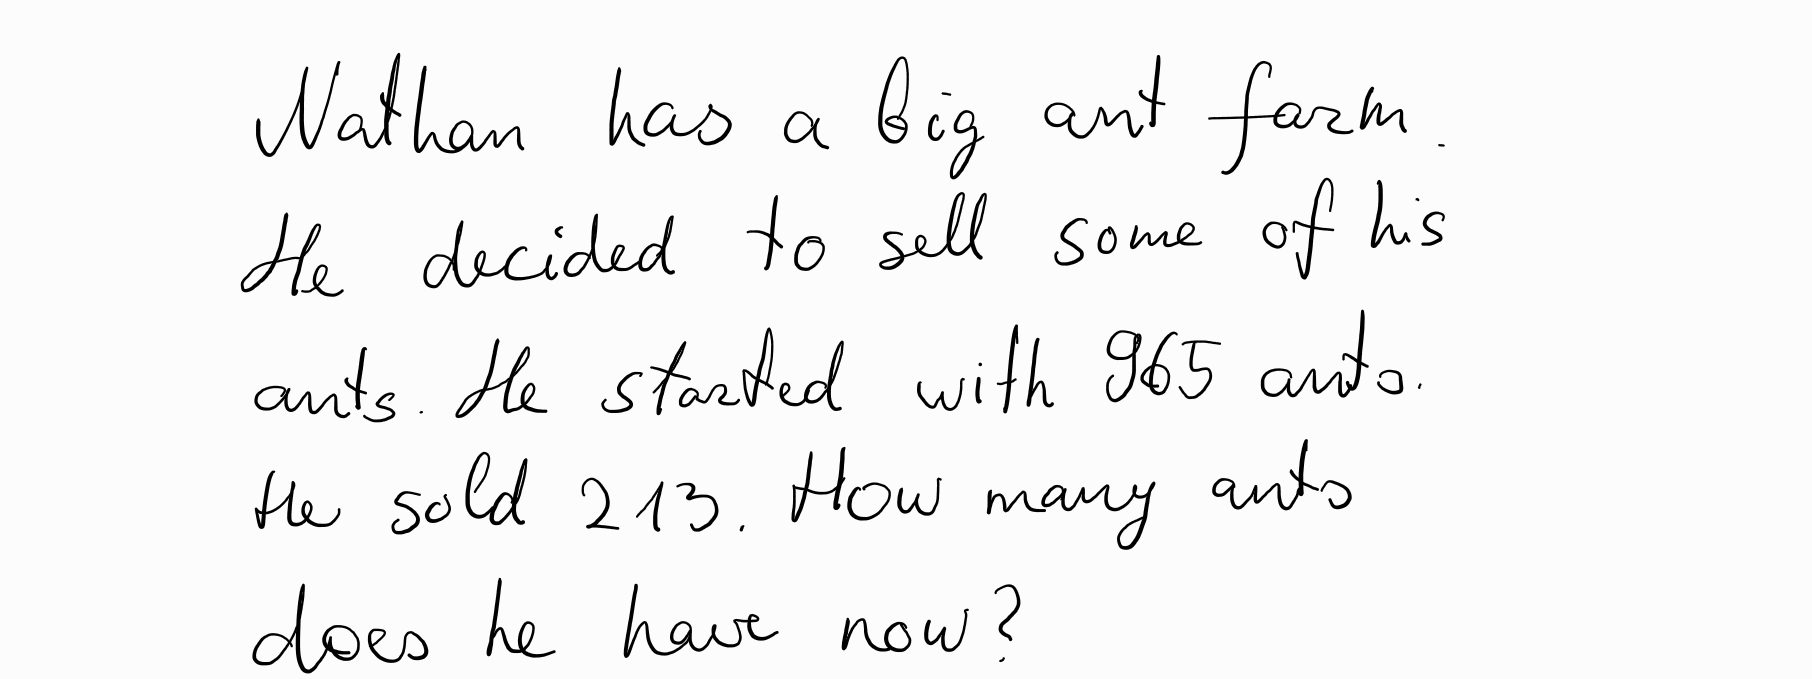 Nathan has a big ant farm.
He decided to sell some of his
ants. He started with 965 ants.
He sold 213. How many ants
does he have now?